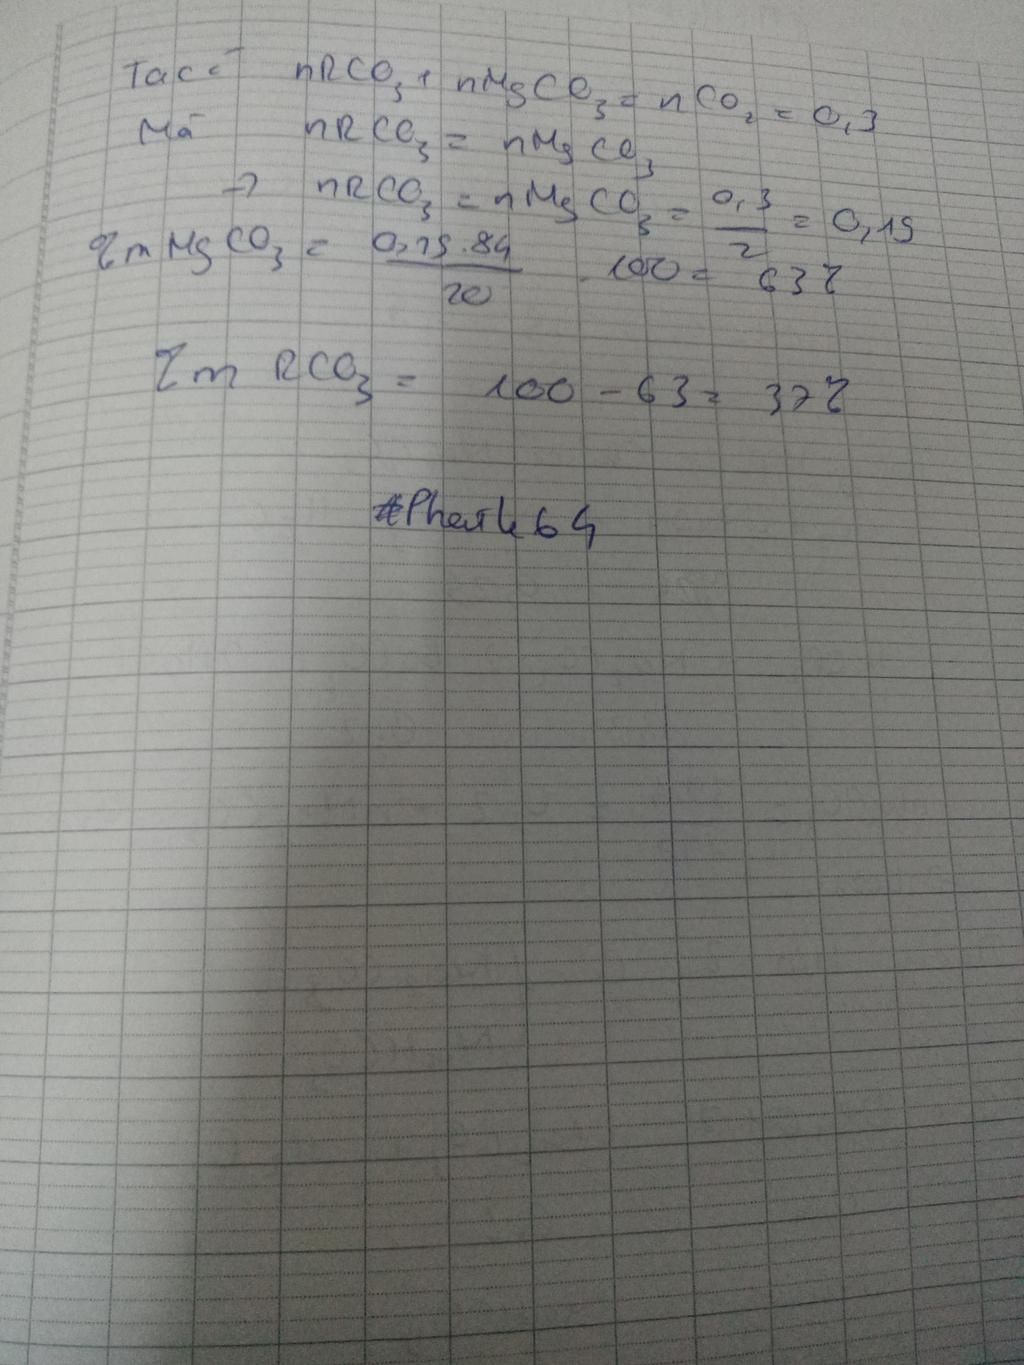 Ta có nRCO3 + nMgCO3 = nCO2 = 0,3
Mà nRCO3 = nMgCO3
-> nRCO3 = nMgCO3 = 0,3/2 = 0,15
%mMgCO3 = 0,15.84/20 . 100 = 63%
%m RCO3 = 100 - 63 = 37%